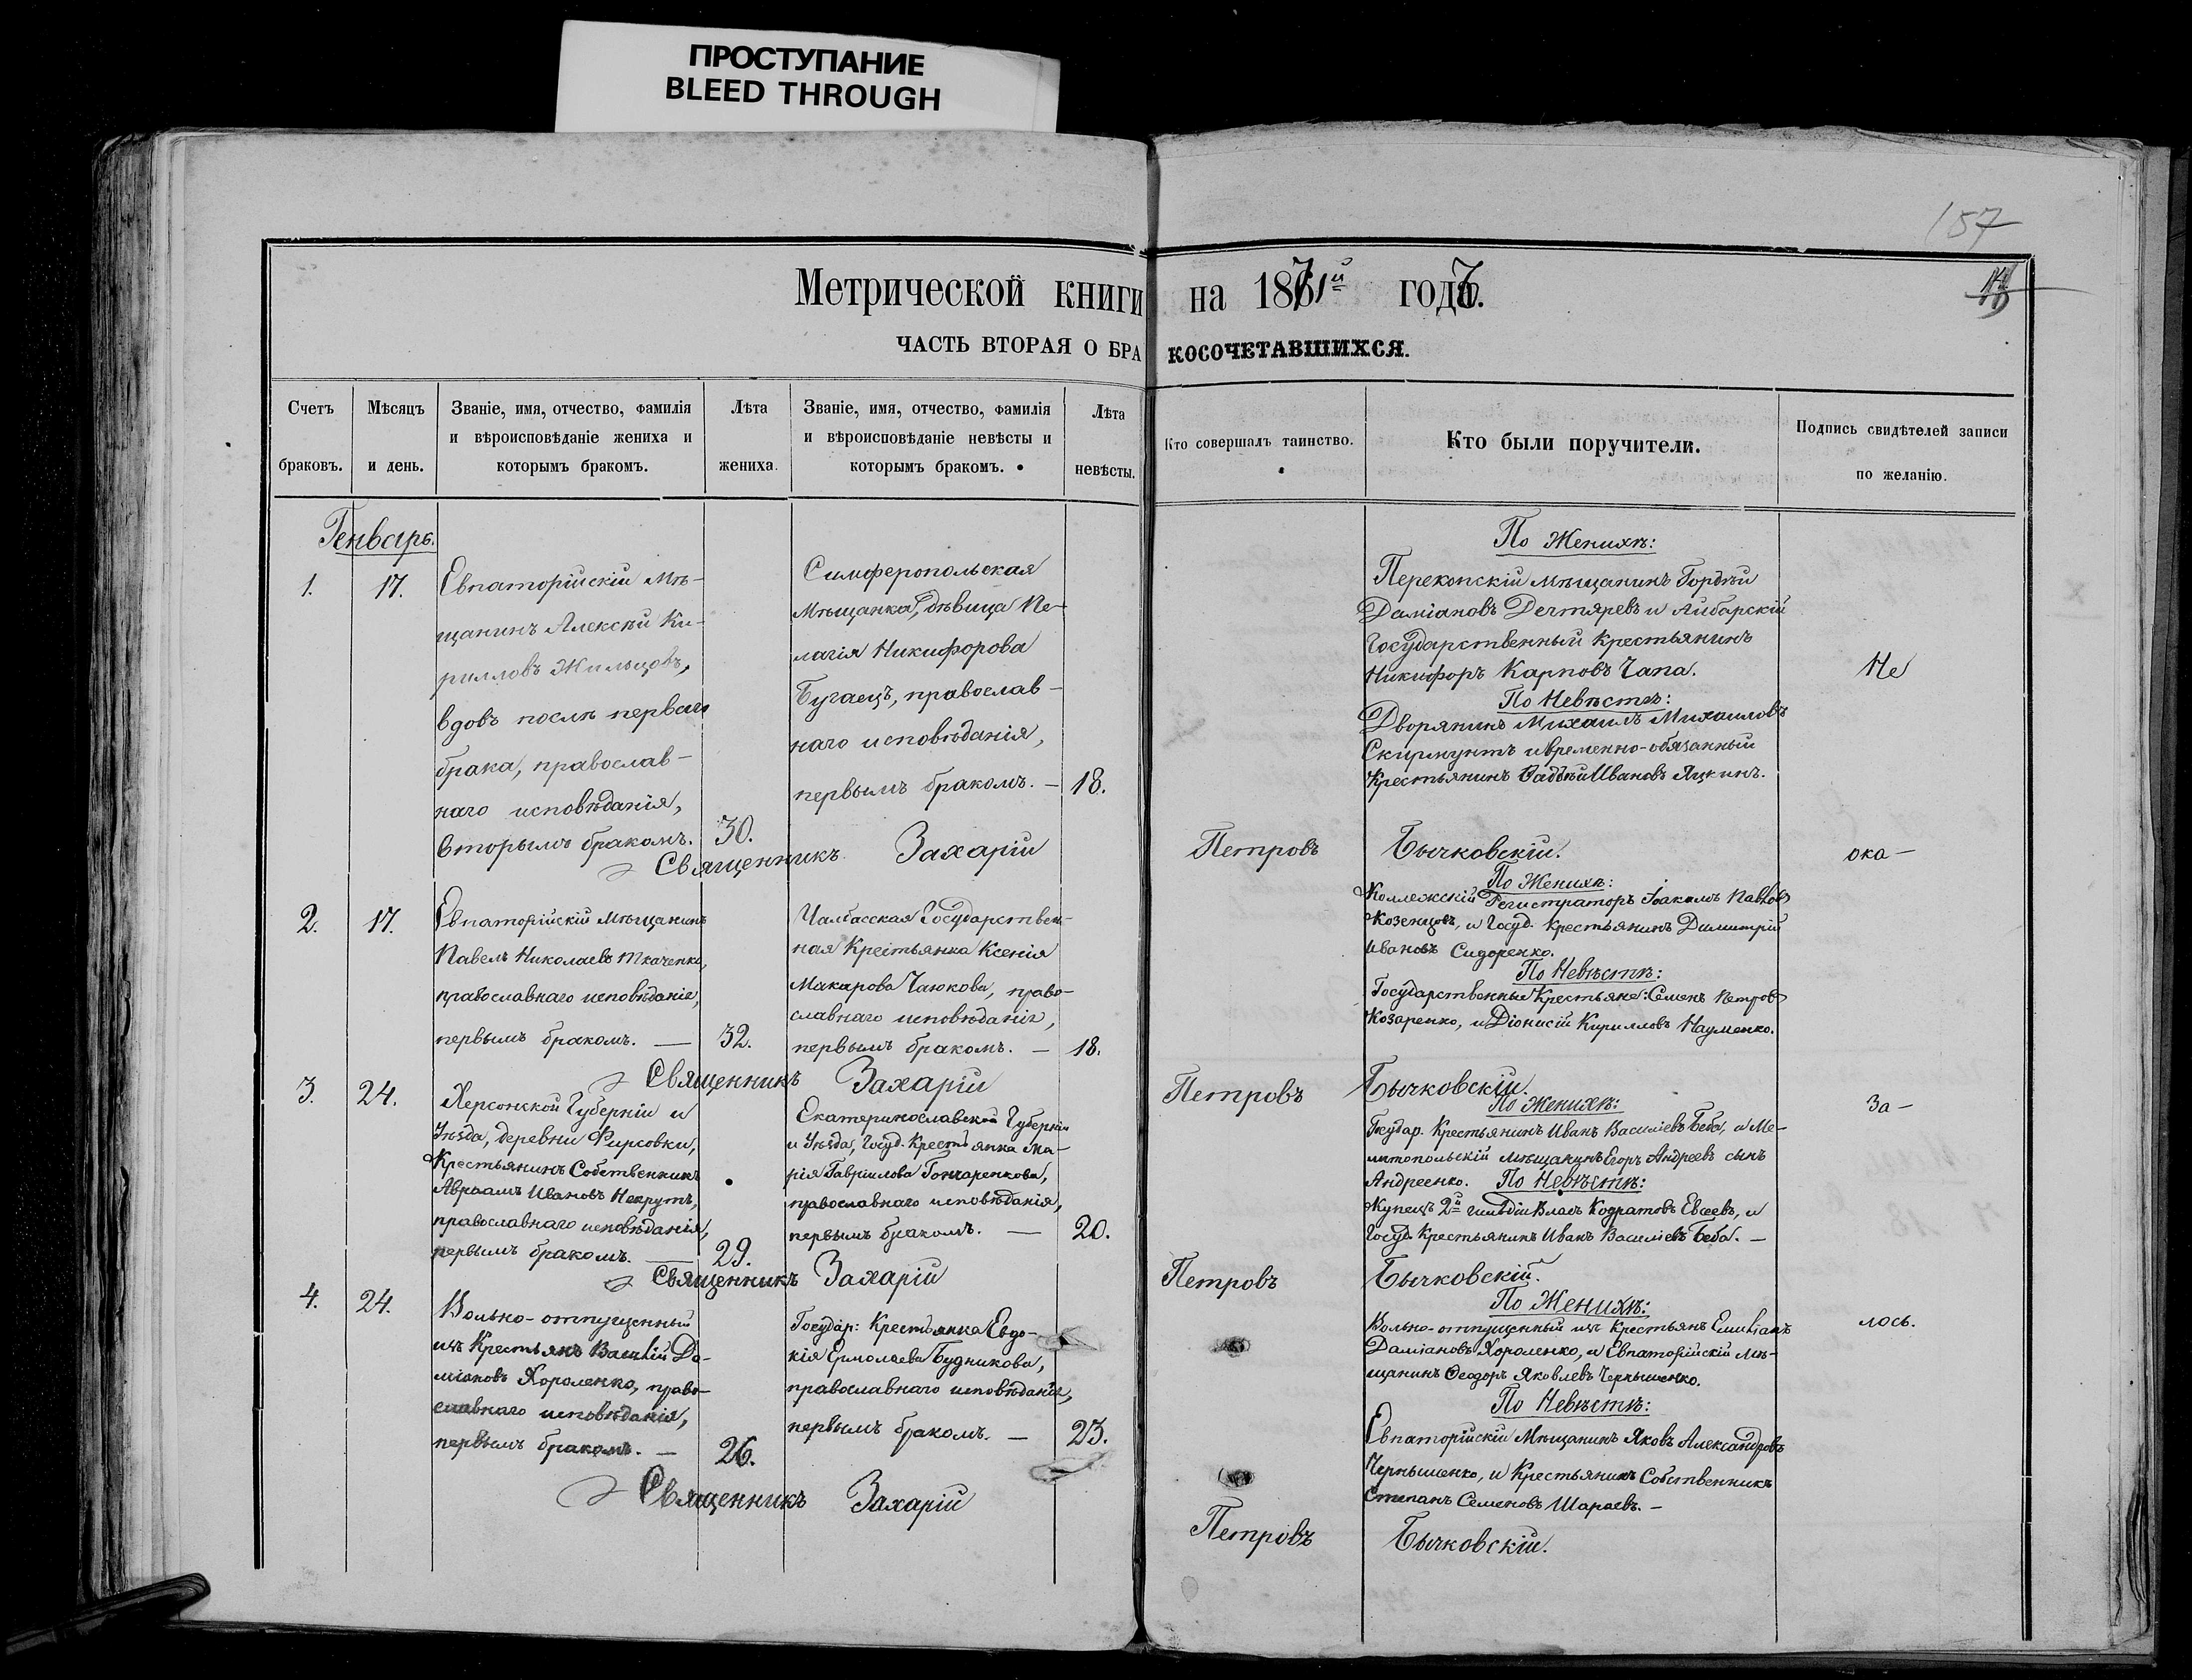 ПРОСТУПАНИЕ
BLEED THROUGH
157
Метрической книги на 1871й годъ.
ЧАСТЬ ВТОРАЯ О БРАКОСОЧЕТАВШИХСЯ.
Счетъ браковъ.
Мѣсяцъ и день.
Званіе, имя, отчество, фамилія
и вѣроисповѣданіе жениха и
которымъ бракомъ.
Лѣта
жениха.
Званіе, имя, отчество, фамилія
и вѣроисповѣданіе невѣсты и
которымъ бракомъ.
Лѣта
невѣсты.
Кто совершалъ таинство.
Кто были поручители.
Подпись свидѣтелей записи
по желанію.
Генварь.
1.
17.
Евпаторійскій Мѣ-
щанинъ Алексѣй Ки-
рилловъ Жильцовъ,
вдовъ послѣ перваго
брака, православ-
наго исповѣданія,
вторымъ бракомъ.
30.
Симферопольская
Мѣщанка, дѣвица Пе-
лагія Никифорова
Бугаецъ, православ-
наго исповѣданія,
первымъ бракомъ. —
18.
По Женихѣ:
Перекопскій мѣщанинъ Гордѣй
Даміановъ Дегтяревъ и Айбарскій
Государственный крестьянинъ
Никифоръ Карповъ Чапа.
По Невѣстѣ:
Дворянинъ Михаилъ Михаиловъ
Скирмунтъ и временно-обязанный
Крестьянинъ Фадѣй Ивановъ Яцкинъ.
Не
Священникъ Захарій Петровъ Бычковскій.
ока-
2.
17.
Евпаторійскій Мѣщанинъ
Павелъ Николаевъ Ткаченко,
православнаго исповѣданія,
первымъ бракомъ. —
32.
Чалбасская Государствен-
ная Крестьянка Ксенія
Макарова Чаюкова, право-
славнаго исповѣданія,
первымъ бракомъ. —
18.
По Женихѣ:
Коллежскій Регистраторъ Іоакимъ Павловъ
Козенцовъ, и Госуд. крестьянинъ Димитрій
Ивановъ Сидоренко.
По Невѣстѣ:
Государственные Крестьяне: Семенъ Петровъ
Козаренко, и Діонисій Кирилловъ Науменко.
Священникъ Захарій Петровъ Бычковскій.
за-
3.
24.
Херсонской Губерніи и
Уѣзда, деревни Фирсовки,
Крестьянинъ Собственникъ
Авраамъ Ивановъ Некрутъ,
православнаго исповѣданія,
первымъ бракомъ. —
29.
Екатеринославской Губерніи
и Уѣзда, Госуд. Крестьянка Ма-
рія Гавріилова Гончаренкова,
православнаго исповѣданія,
первымъ бракомъ. —
20.
По Женихѣ:
Государ. Крестьянинъ Иванъ Василіевъ Беба, и Ме-
литопольскій мѣщанинъ Егоръ Андреевъ сынъ
Андреенко. По Невѣстѣ:
Купецъ 2й гильдіи Власъ Кодратовъ Евсеевъ, и
Госуд. Крестьянинъ Иванъ Василіевъ Беба. —
Священникъ Захарій Петровъ Бычковскій.
4.
24.
Вольно-отпущенный
изъ Крестьянъ Василій Да-
міановъ Хороленко, право-
славнаго исповѣданія,
первымъ бракомъ. —
26.
Государ: Крестьянка Евдо-
кія Ермолаева Будникова,
православнаго исповѣданія,
первымъ бракомъ. —
23.
По Женихѣ:
Вольно-отпущенный изъ Крестьянъ Емиліанъ
Даміановъ Хороленко, и Евпаторійскій Мѣ-
щанинъ Ѳеодоръ Яковлевъ Чернышенко.
По Невѣстѣ:
Евпаторійскій Мѣщанинъ Яковъ Александровъ
Чернышенко, и Крестьянинъ Собственникъ
Степанъ Семеновъ Шараевъ. —
лось.
Священникъ Захарій Петровъ Бычковскій.